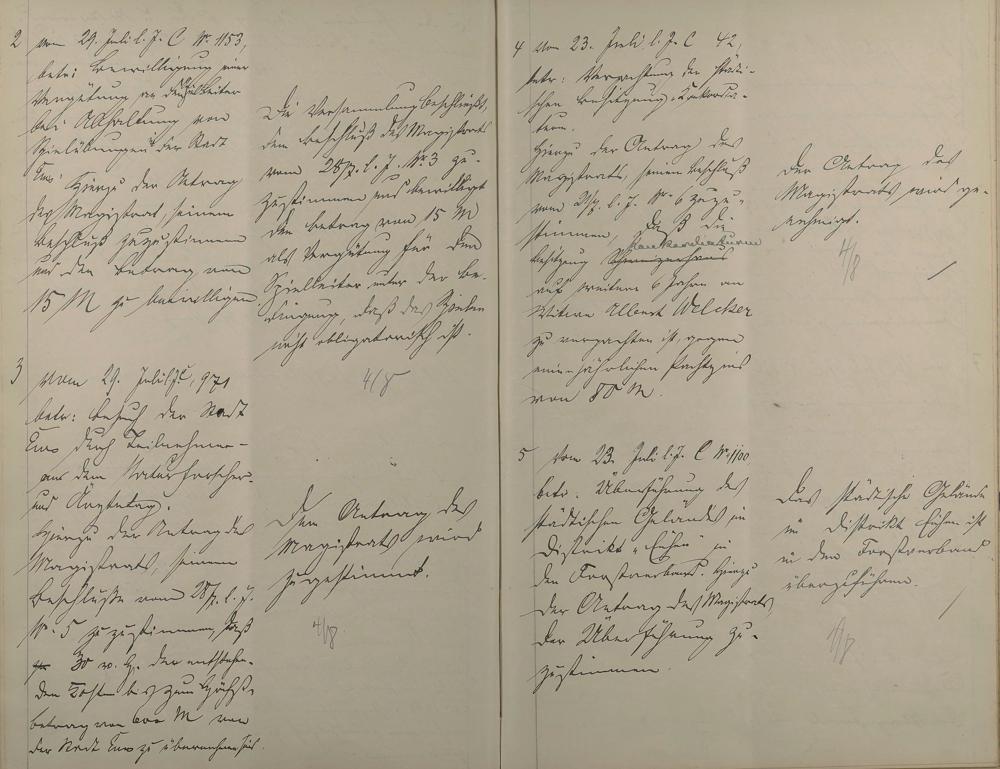 2 vom 29. Juli l. J. C № 1153,
betr: Bewilligung einer
Vergütung an den Spielleiter
bei Abhaltung von
Spielübungen in der Stadt
Ems.
Hierzu der Antrag
des Magistrat, seinem
Beschluß zuzustimmen
und den Betrag von
15 M zu bewilligen.
Die Versammlung beschließt,
dem Beschluß des Magistrats
vom 28/7. l. J. № 3 zu-
zustimmen und bewilligt
den Betrag von 15 M
als Vergütung für den
Spielleiter unter der Be-
dingung, daß das Spielen
nicht obligatorisch ist.
4/8
3 vom 29. Juli l. J. C, 971
betr: Besuch der Stadt
Ems durch Teilnehmer
aus dem Naturforscher-
und Ärztetag.
Hierzu der Antrag des
Magistrats, seinem
Beschluße vom 28/7. l. J.
№ 5 zuzustimmen, daß
30 v. H. der entstehen-
den Kosten bis zum Höchst-
betrag von 600 M von
der Stadt Ems zu übernehmen sei.
Dem Antrag des
Magistrats wird
zugestimmt.
4/8
4 vom 23. Juli l. J. C 42,
betr: Verpachtung der städti-
schen Besitzung, Konkordia-
turm.
Hierzu der Antrag des
Magistrats, seinem Beschluß
vom 21/7. l. J. № 6 zuzu-
stimmen, daß die
Besitzung Schweizerhaus Konkordiaturm
auf weitere 6 Jahre an
Witwe Albert Welcker
zu verpachten ist, gegen
einen jährlichen Pachtzins
von 80 M.
Der Antrag des
Magistrats wird ge-
nehmigt.
4/8
5 vom 23. Juli l. J. C № 1100
betr. Überführung des
städtischen Geländes im
Distrikt „Eichen" in
den Forstverband. Hierzu
der Antrag des Magistrats,
der Überführung zu-
zustimmen.
Das städtische Gelände
im Distrikt Eichen ist
in den Forstverband
überzuführen.
4/8